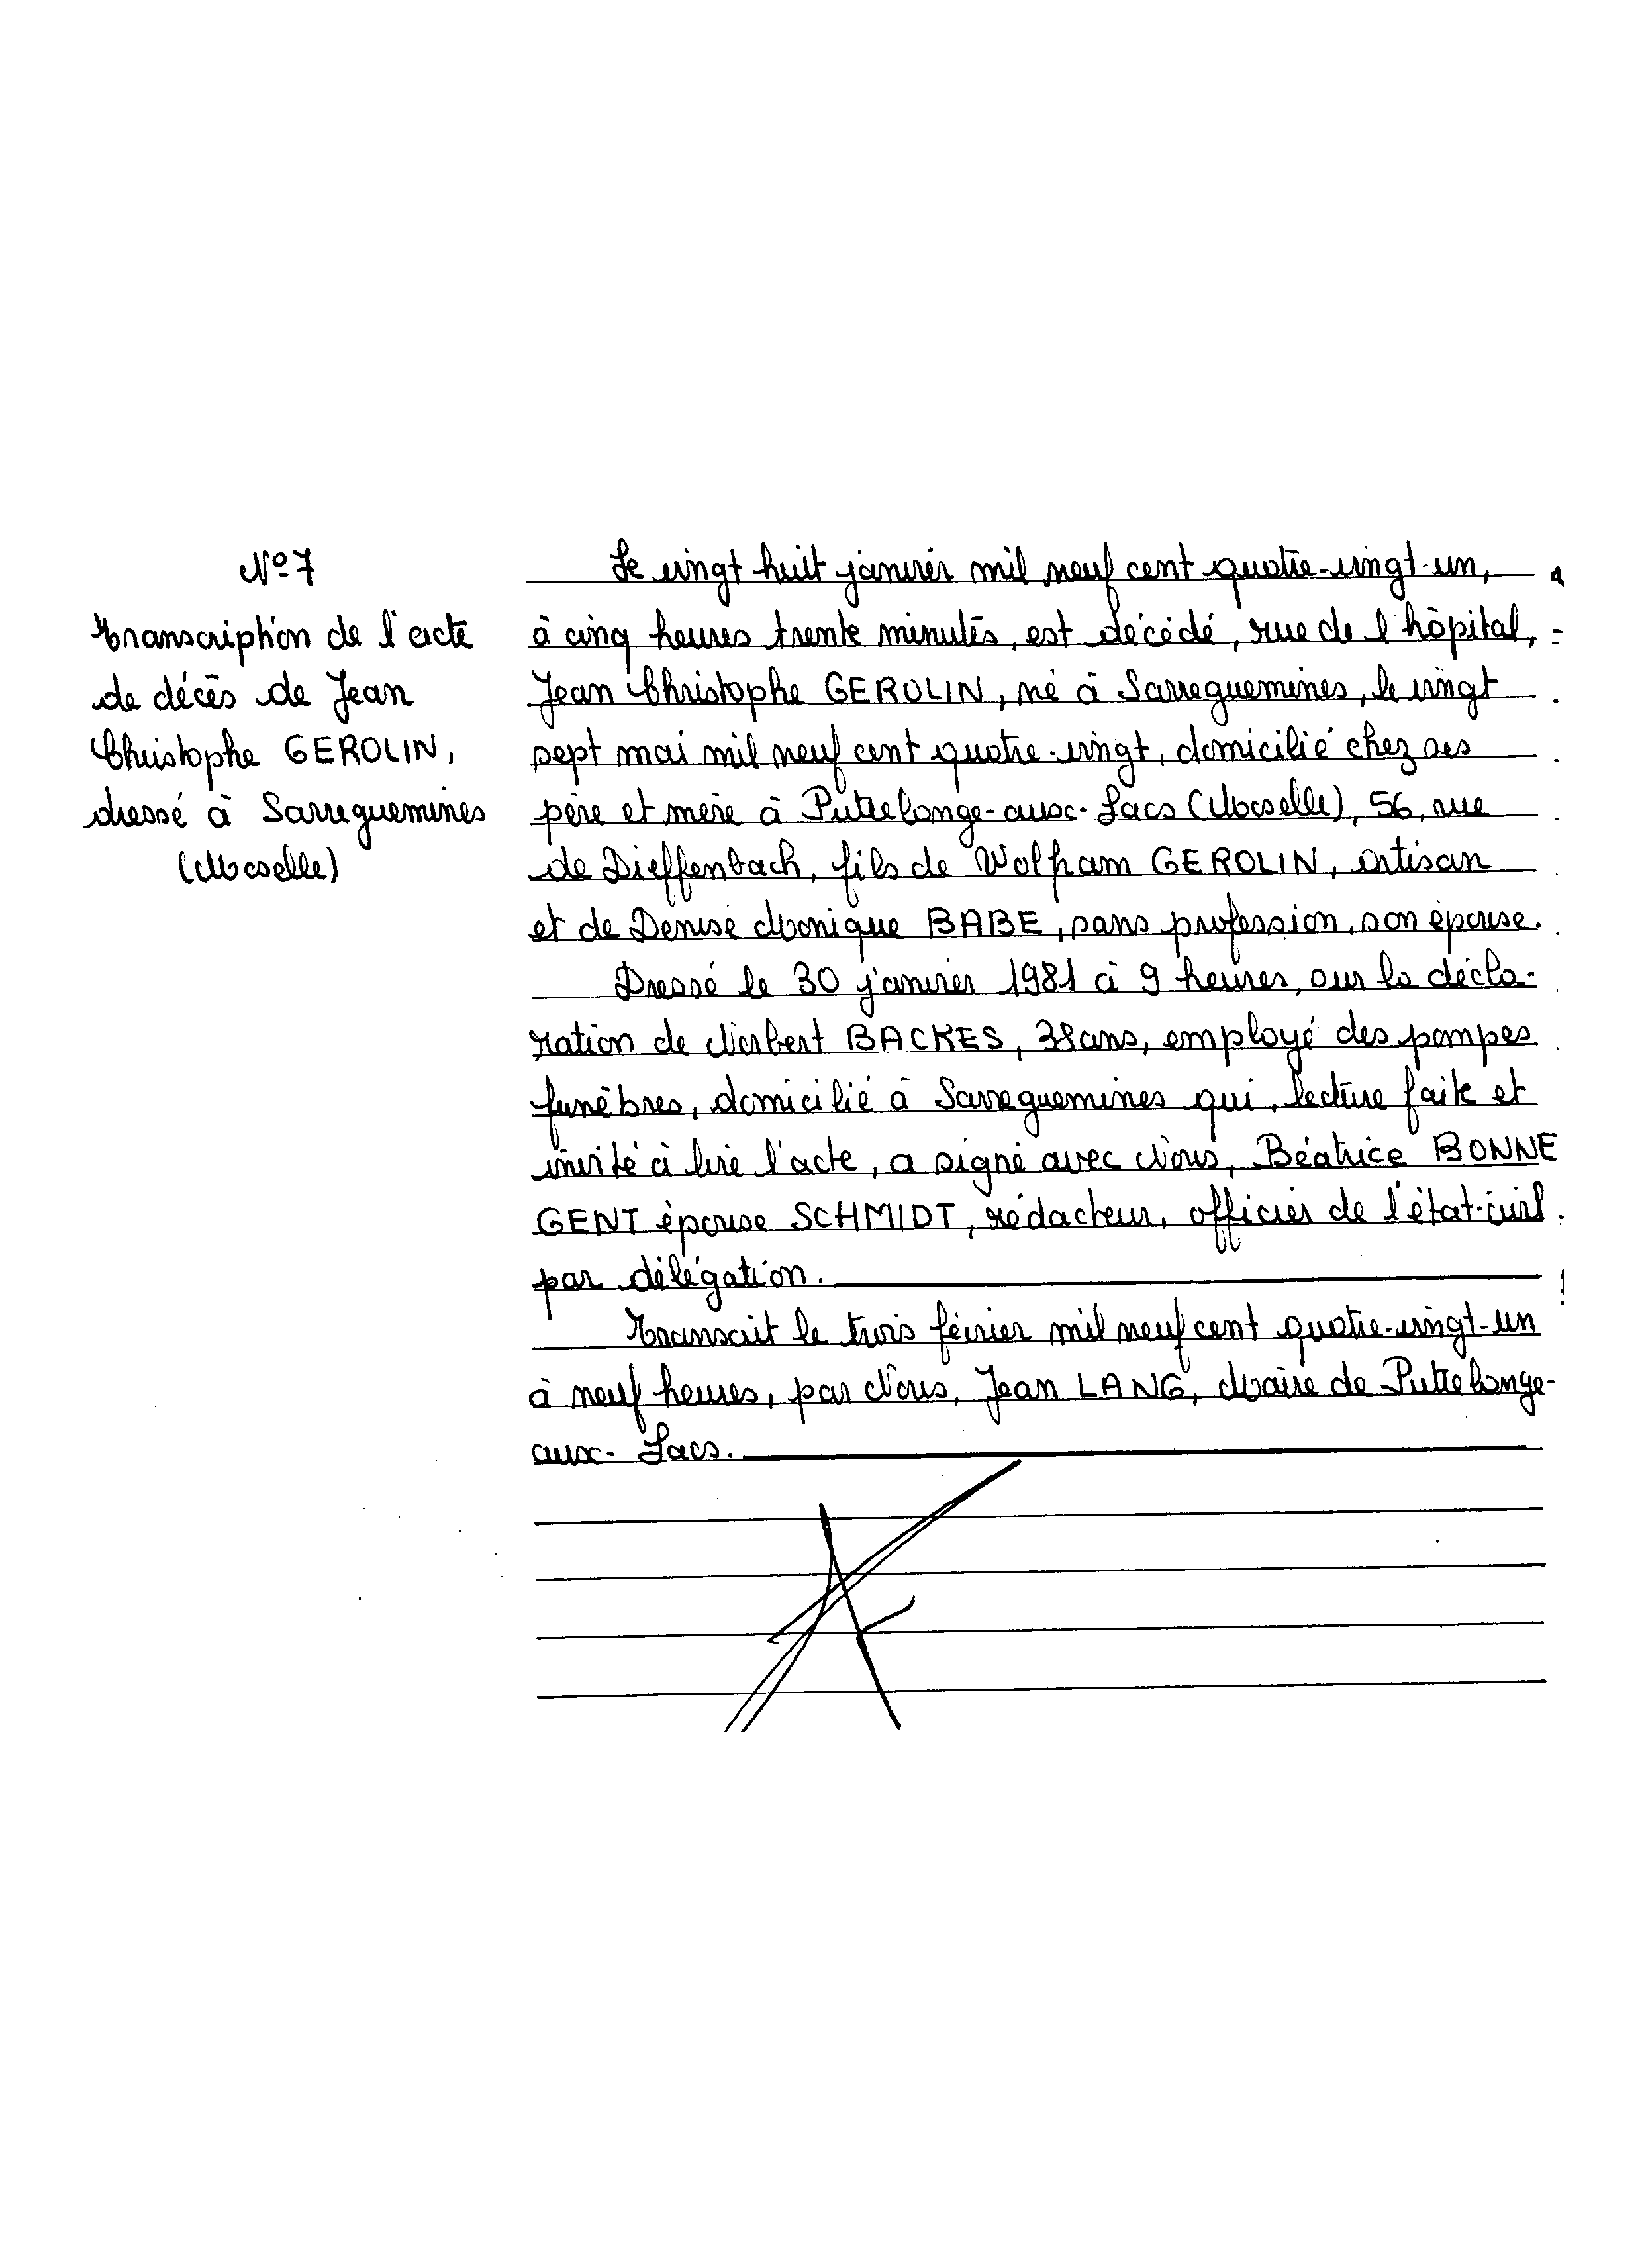 Nº 7
Transcription de l'acte
de décès de Jean
Christophe GEROLIN,
dressé à Sarreguemines
(Moselle)
Le vingt huit janvier mil neuf cent quatre-vingt-un,
à cinq heures trente minutes, est décédé, rue de l'hôpital,
Jean Christophe GEROLIN, né à Sarreguemines, le vingt
sept mai mil neuf cent quatre-vingt, domicilié chez ses
père et mère à Puttelange-aux-Lacs (Moselle), 56, rue
de Dieffenbach, fils de Wolfram GEROLIN, artisan
et de Denise Monique BABE, sans profession, son épouse.
Dressé le 30 janvier 1981 à 9 heures, sur la décla-
ration de Norbert BACKES, 38 ans, employé des pompes
funèbres, domicilié à Sarreguemines qui, lecture faite et
invité à lire l'acte, a signé avec Nous, Béatrice BONNE
GENT épouse SCHMIDT, rédacteur, officier de l'état-civil
par délégation.
Transcrit le trois février mil neuf cent quatre-vingt-un
à neuf heures, par Nous, Jean LANG, Maire de Puttelange-
aux-Lacs.